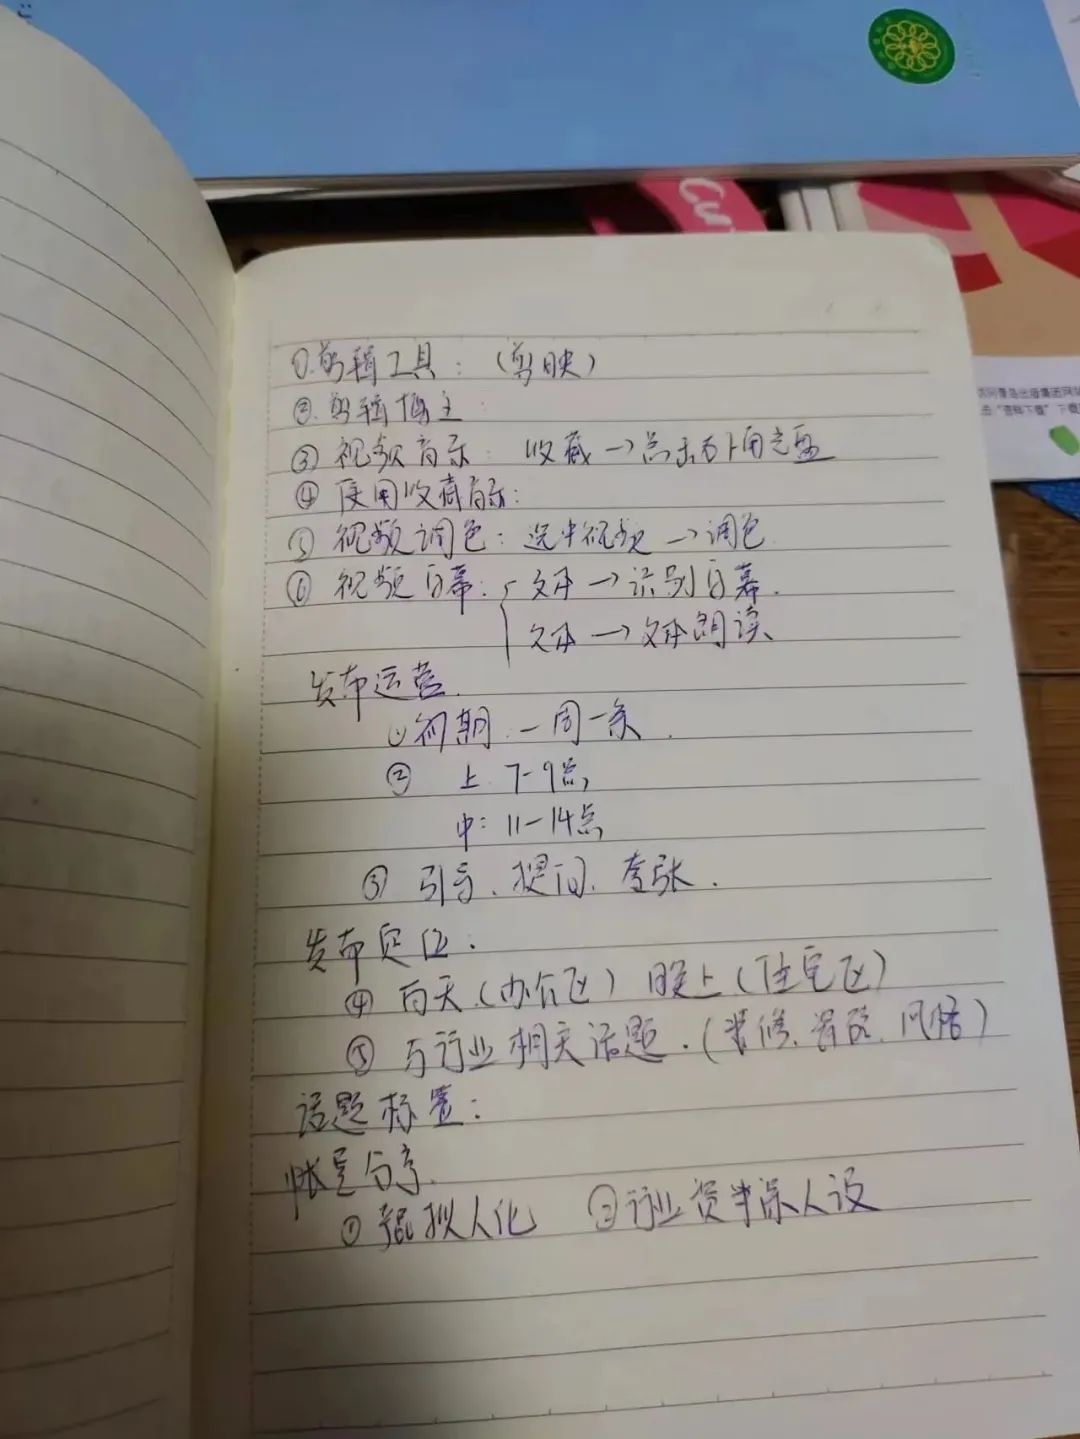 Cu
访问青岛出版集团网站
击“资料下载”下载
①剪辑工具：（剪映）
②剪辑博主：
③视频音乐：收藏→点击
④使用收藏音乐：
⑤视频调色：选中视频→调色
⑥视频字幕：文本→识别字幕.
文本→文本朗读
发布运营.
①初期：一周一条.
② 上：7-9点
中：11-14点
③ 引导、提问、夸张.
发布定位：
④ 白天（办公区） 晚上（住宅区）
⑤ 与行业相关话题.（装修、 风格）
话题标置：
帐号分享.
① 拟人化 ②行业资 人设